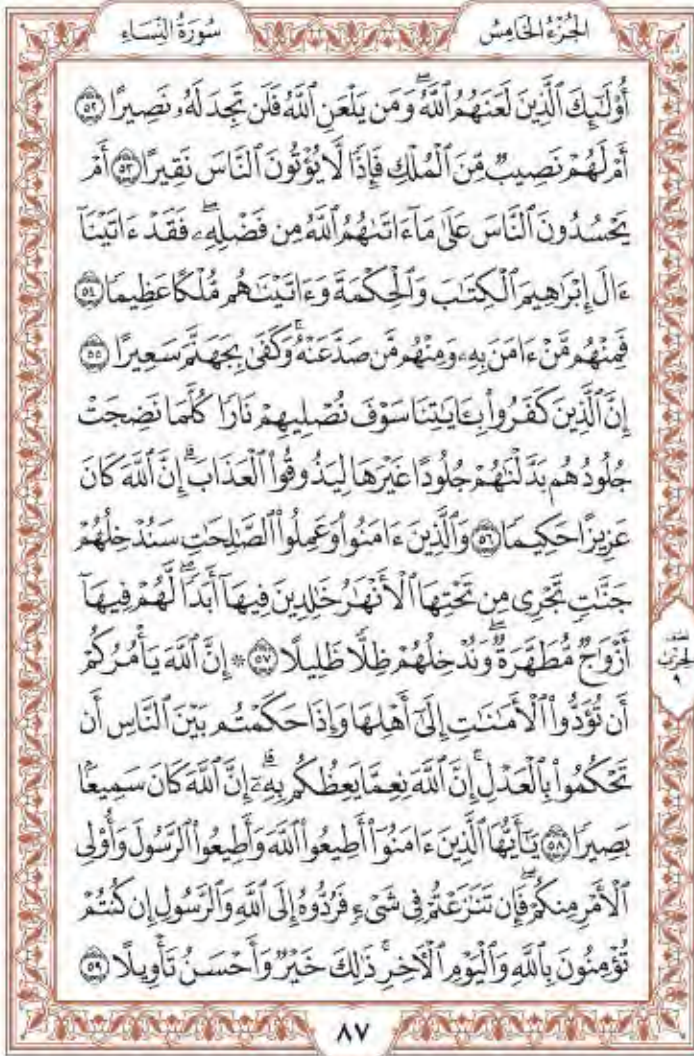 الجُزْءُ الخَامِسُ
سُورَةُ النِّسَاءِ
أُوْلَـٰٓئِكَ ٱلَّذِينَ لَعَنَهُمُ ٱللَّهُۖ وَمَن يَلْعَنِ ٱللَّهُ فَلَن تَجِدَ لَهُۥ نَصِيرًا ٥٢
أَمْ لَهُمْ نَصِيبٌ مِّنَ ٱلْمُلْكِ فَإِذًا لَّا يُؤْتُونَ ٱلنَّاسَ نَقِيرًا ٥٣ أَمْ
يَحْسُدُونَ ٱلنَّاسَ عَلَىٰ مَآ ءَاتَىٰهُمُ ٱللَّهُ مِن فَضْلِهِۦۖ فَقَدْ ءَاتَيْنَآ
ءَالَ إِبْرَٰهِيمَ ٱلْكِتَـٰبَ وَٱلْحِكْمَةَ وَءَاتَيْنَـٰهُم مُّلْكًا عَظِيمًا ٥٤
فَمِنْهُم مَّنْ ءَامَنَ بِهِۦ وَمِنْهُم مَّن صَدَّ عَنْهُۚ وَكَفَىٰ بِجَهَنَّمَ سَعِيرًا ٥٥
إِنَّ ٱلَّذِينَ كَفَرُواْ بِـَٔايَـٰتِنَا سَوْفَ نُصْلِيهِمْ نَارًا كُلَّمَا نَضِجَتْ
جُلُودُهُم بَدَّلْنَـٰهُمْ جُلُودًا غَيْرَهَا لِيَذُوقُواْ ٱلْعَذَابَۗ إِنَّ ٱللَّهَ كَانَ
عَزِيزًا حَكِيمًا ٥٦ وَٱلَّذِينَ ءَامَنُواْ وَعَمِلُواْ ٱلصَّـٰلِحَـٰتِ سَنُدْخِلُهُمْ
جَنَّـٰتٍ تَجْرِى مِن تَحْتِهَا ٱلْأَنْهَـٰرُ خَـٰلِدِينَ فِيهَآ أَبَدًاۖ لَّهُمْ فِيهَآ
أَزْوَٰجٌ مُّطَهَّرَةٌۖ وَنُدْخِلُهُمْ ظِلًّا ظَلِيلًا ٥٧ ۞ إِنَّ ٱللَّهَ يَأْمُرُكُمْ
أَن تُؤَدُّواْ ٱلْأَمَـٰنَـٰتِ إِلَىٰٓ أَهْلِهَا وَإِذَا حَكَمْتُم بَيْنَ ٱلنَّاسِ أَن
تَحْكُمُواْ بِٱلْعَدْلِۚ إِنَّ ٱللَّهَ نِعِمَّا يَعِظُكُم بِهِۦٓۗ إِنَّ ٱللَّهَ كَانَ سَمِيعًۢا
بَصِيرًا ٥٨ يَـٰٓأَيُّهَا ٱلَّذِينَ ءَامَنُوٓاْ أَطِيعُواْ ٱللَّهَ وَأَطِيعُواْ ٱلرَّسُولَ وَأُوْلِى
ٱلْأَمْرِ مِنكُمْۖ فَإِن تَنَـٰزَعْتُمْ فِى شَىْءٍ فَرُدُّوهُ إِلَى ٱللَّهِ وَٱلرَّسُولِ إِن كُنتُمْ
تُؤْمِنُونَ بِٱللَّهِ وَٱلْيَوْمِ ٱلْأَخِرِۚ ذَٰلِكَ خَيْرٌ وَأَحْسَنُ تَأْوِيلًا ٥٩
نصف
الحزب
٩
٨٧